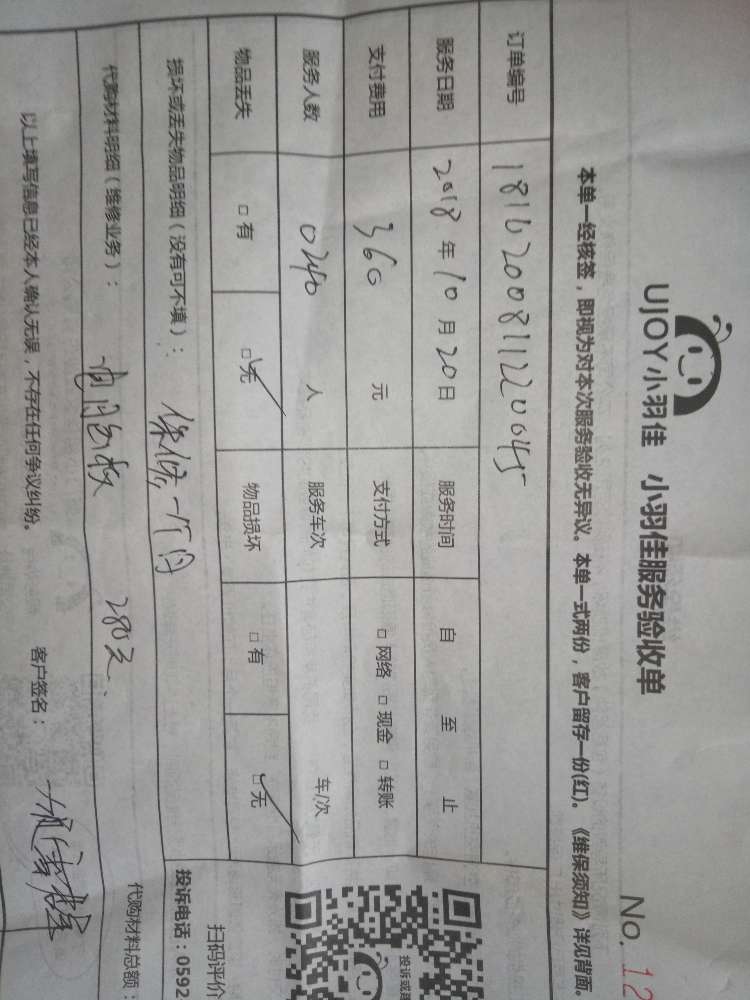 UJOY小羽佳 小羽佳服务验收单
No. 12
本单一经核签，即视为对本次服务验收无异议。本单一式两份，客户留存一份(红)。《维保须知》详见背面。
订单编号
服务日期 2018 年 10 月 20 日 服务时间 自 至 止
支付费用 360 元 支付方式 □ 网络 □ 现金 □ 转账
服务人数 人 服务车次 车/次
物品丢失 □ 有 □ 无 物品损坏 □ 有 □ 无
损坏或丢失物品明细（没有可不填）： 保修一个月
代购材料明细（维修业务）： 280元、
代购材料总额：
以上填写信息已经本人确认无误，不存在任何争议纠纷。 客户签名：
投诉或建
扫码评价
投诉电话：0592